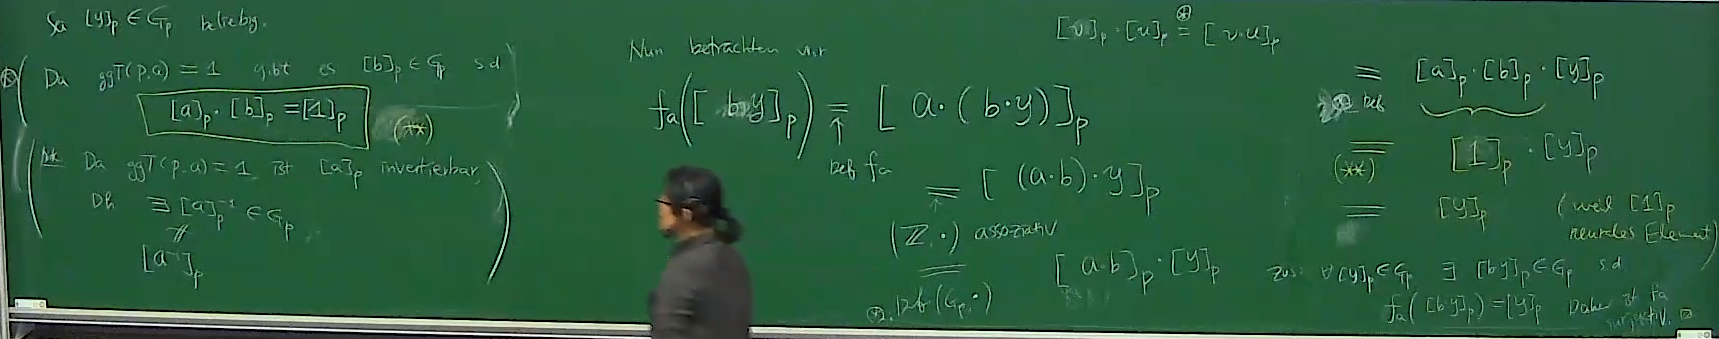 Sei [y]_p ∈ G_p beliebig.
Da ggT(p,a) = 1 gibt es [b]_p ∈ G_p s.d
[a]_p · [b]_p = [1]_p
(**)
Da ggT(p,a) = 1, ist [a]_p invertierbar,
Dh ∃ [a]_p^{-1} ∈ G_p
[a^{-1}]_p
Nun betrachten wir
f_a([by]_p) = [a·(b·y)]_p
Def f_a
= [(a·b)·y]_p
(ℤ, ·) assoziativ
= [a·b]_p · [y]_p
⊛. Def (G_p, ·)
[v]_p · [u]_p ⊛= [v·u]_p
= [a]_p · [b]_p · [y]_p
Def
= [1]_p · [y]_p
(**)
= [y]_p (weil [1]_p
neutrales Element)
Zus: ∀ [y]_p ∈ G_p ∃ [by]_p ∈ G_p s.d.
f_a([by]_p) = [y]_p Daher ist f_a
surjektiv. □